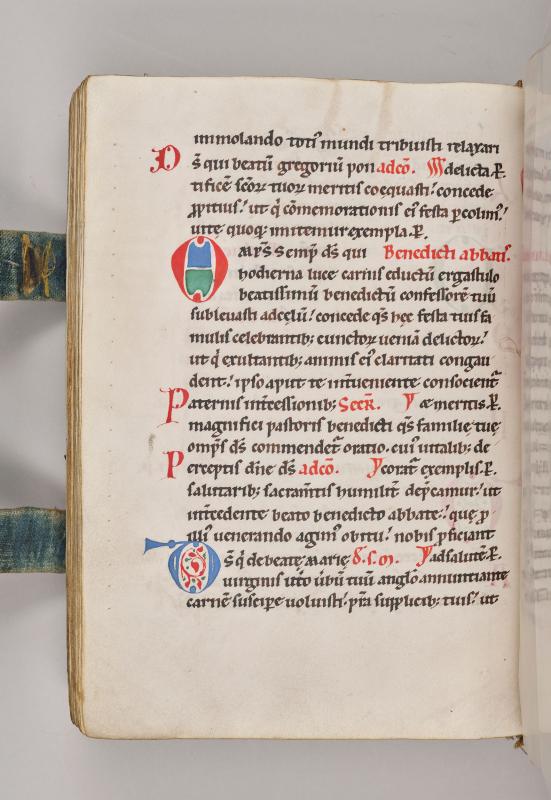 immolando toti᾽ mundi tribuisti relaxari
D s̄ qui beatū gregoriū pon adcō. delicta. P̄.
tificē sc̄oꝝ tuoꝝ meritis coequasti! concede
ꝓpitius! ut q̄ cōmemorationis ei᾽ festa ꝑcolim᾽!
uite quoq; imitemur exempla. P̄.
O mp̄s semp̄ ds̄ qui Benedicti abbatis.
hodierna luce carnis eductū ergastulo
beatissimū benedictū confessorē tuū
subleuasti ad celū! concede qs̄ hęc festa tuis fa
mulis celebrantib; cunctoꝝ ueniā delictoꝝ!
ut q̄ exultantib; animis ei᾽ claritati congau
dent! ipso aput te interueniente consocient᾽
Paternis int̄cessionib; Secr̄. & meritis. P̄.
magnifici pastoris benedicti qs̄ familię tuę
omp̄s ds̄ commendet᾽ oratio. cui᾽ uitalib; de
Perceptis dn̄e ds̄ adcō. corat᾽ exemplis. P̄.
salutarib; sacram̄tis humilit᾽ dep̄camur! ut
int̄cedente beato benedicto abbate! quę ꝓ
illi᾽ uenerando agim᾽ obitu! nobis ꝓficiant
D s̄ q̄ de beatę marię ad salutē. P̄.
uirginis ut̄o ūbū tuū anglo annuntiante
carnē suscipe uoluisti! p̄ta supplicib; tuis! ut